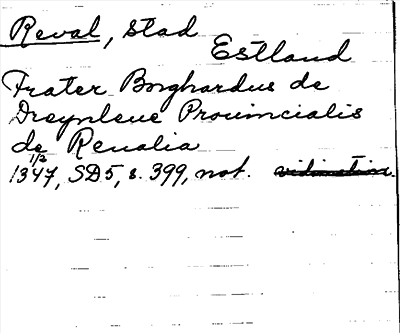 Reval, stad
Estland
Frater Borghardus de
Dreynleue Prouincialis
de Reualia
1/2
1347, SD5, s. 399, not. vidimation.